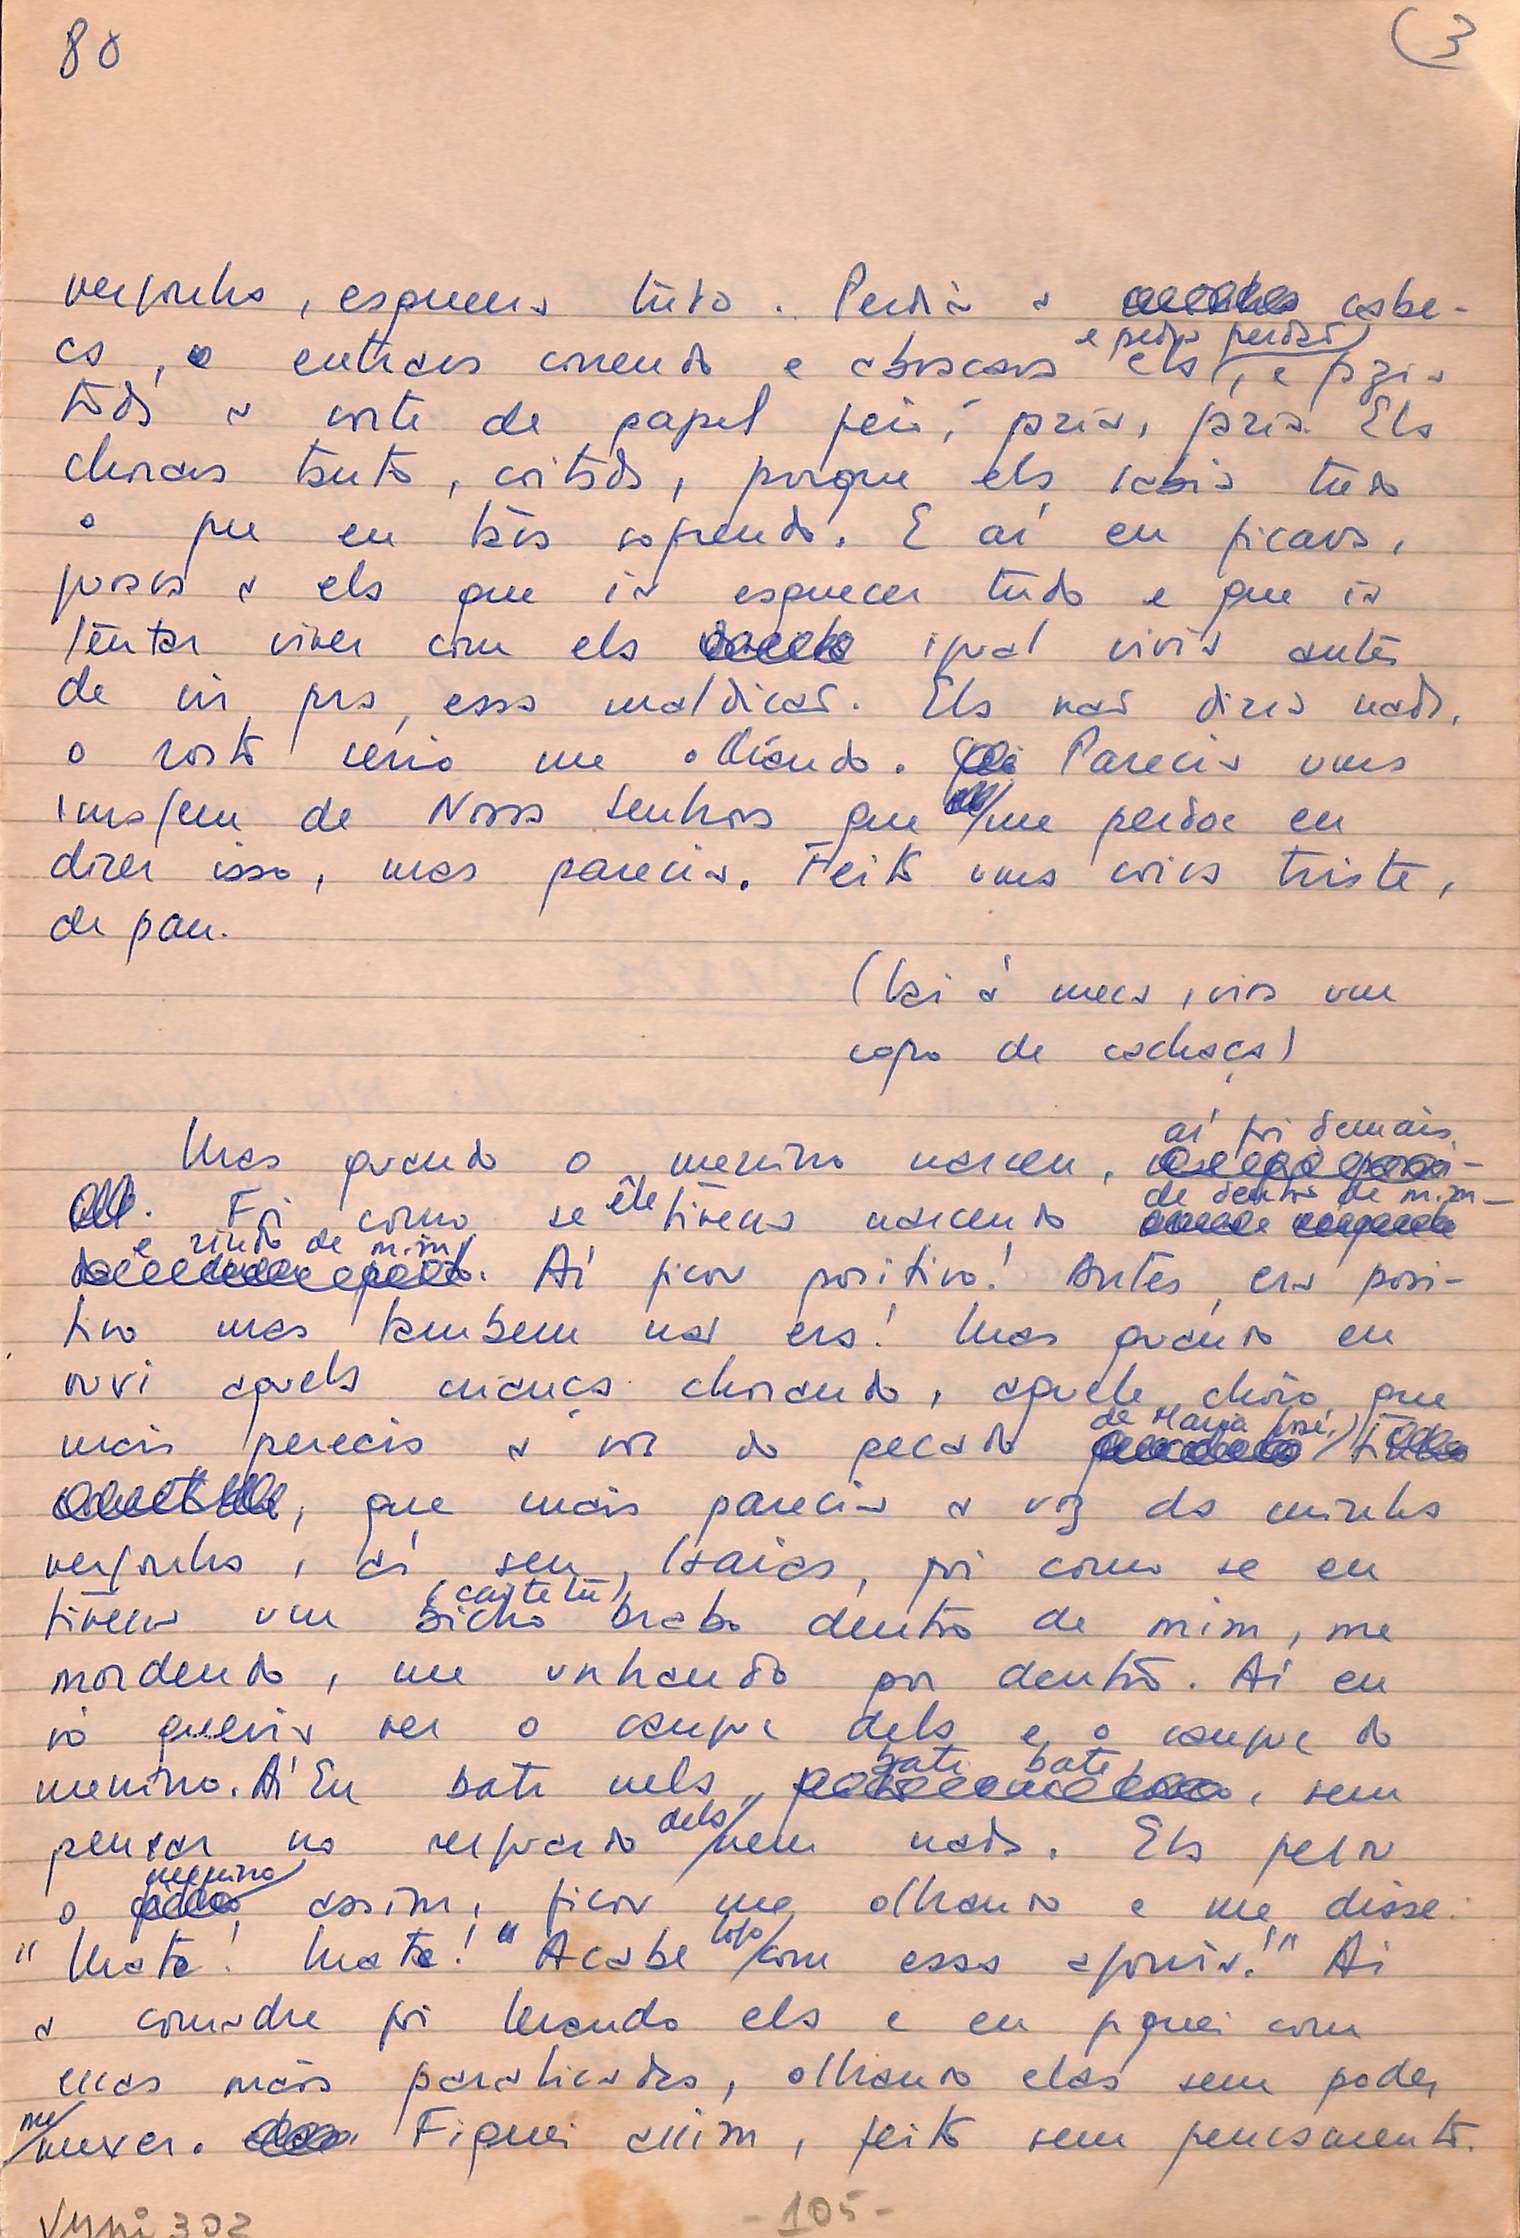 80
(3
vergonha, esquecia tudo. Perdia a cabe-
ça, e entrava correndo e abraçava ela, e pedia perdão, e fazia
toda a sorte de papel feio, fazia, fazia. Ela
chorava tanto, coitada, porque ela sabia tudo
o que eu tava sofrendo. E aí eu ficava,
jurava a ela que ia esquecer tudo e que ia
tentar viver com ela igual vivia antes
de vir pra essa maldição. Ela não dizia nada,
o rosto sério me olhando. Parecia uma
imagem de Nossa Senhora que me perdoe eu
dizer isso, mas parecia. Feito uma coisa triste,
de pau.
(Vai à mesa, vira um
copo de cachaça)
Mas quando o menino nasceu, aí foi demais.
Foi como se êle tivesse nascendo de dentro de mim
e rindo de mim. Aí ficou positivo! Antes, era posi-
tivo mas também não era! Mas quando eu
ouvi aquela criança chorando, aquele chôro que
mais parecia a voz do pecado de Maria José,
que mais parecia a voz da minha
vergonha, aí, seu Isaias, foi como se eu
tivesse um bicho (caitetú) brabo dentro de mim, me
mordendo, me unhando por dentro. Aí eu
só queria ver o sangue dela e o sangue do
menino. Aí Eu bati nela, bati, bati, sem
pensar no resguardo dela nem nada. Ela pegou
o menino assim, ficou me olhando e me disse:
"Mata! Mata! Acabe logo com essa agonia!" Aí
a comadre foi levando ela e eu fiquei com
essas mãos paralisadas, olhando elas sem poder
me mexer. Fiquei assim, feito sem pensamento.
VMpi 302
- 105 -